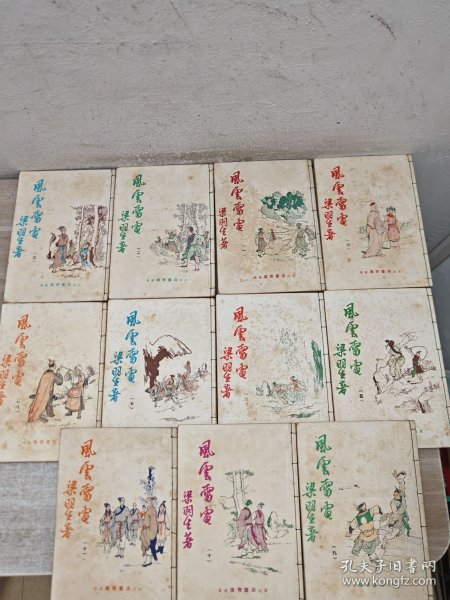 風雲雷電
梁羽生著
風雲雷電
梁羽生著
風雲雷電
梁羽生著
風雲雷電
梁羽生著
風雲雷電
梁羽生著
風雲雷電
梁羽生著
(七)
風雲雷電
梁羽生著
風雲雷電
梁羽生著
風雲雷電
梁羽生著
(十一)
香港偉青書店出版
風雲雷電
梁羽生著
(十)
香港偉青書店出版
風雲雷電
梁羽生著
(九)
孔夫子旧书网
www.kongfz.com